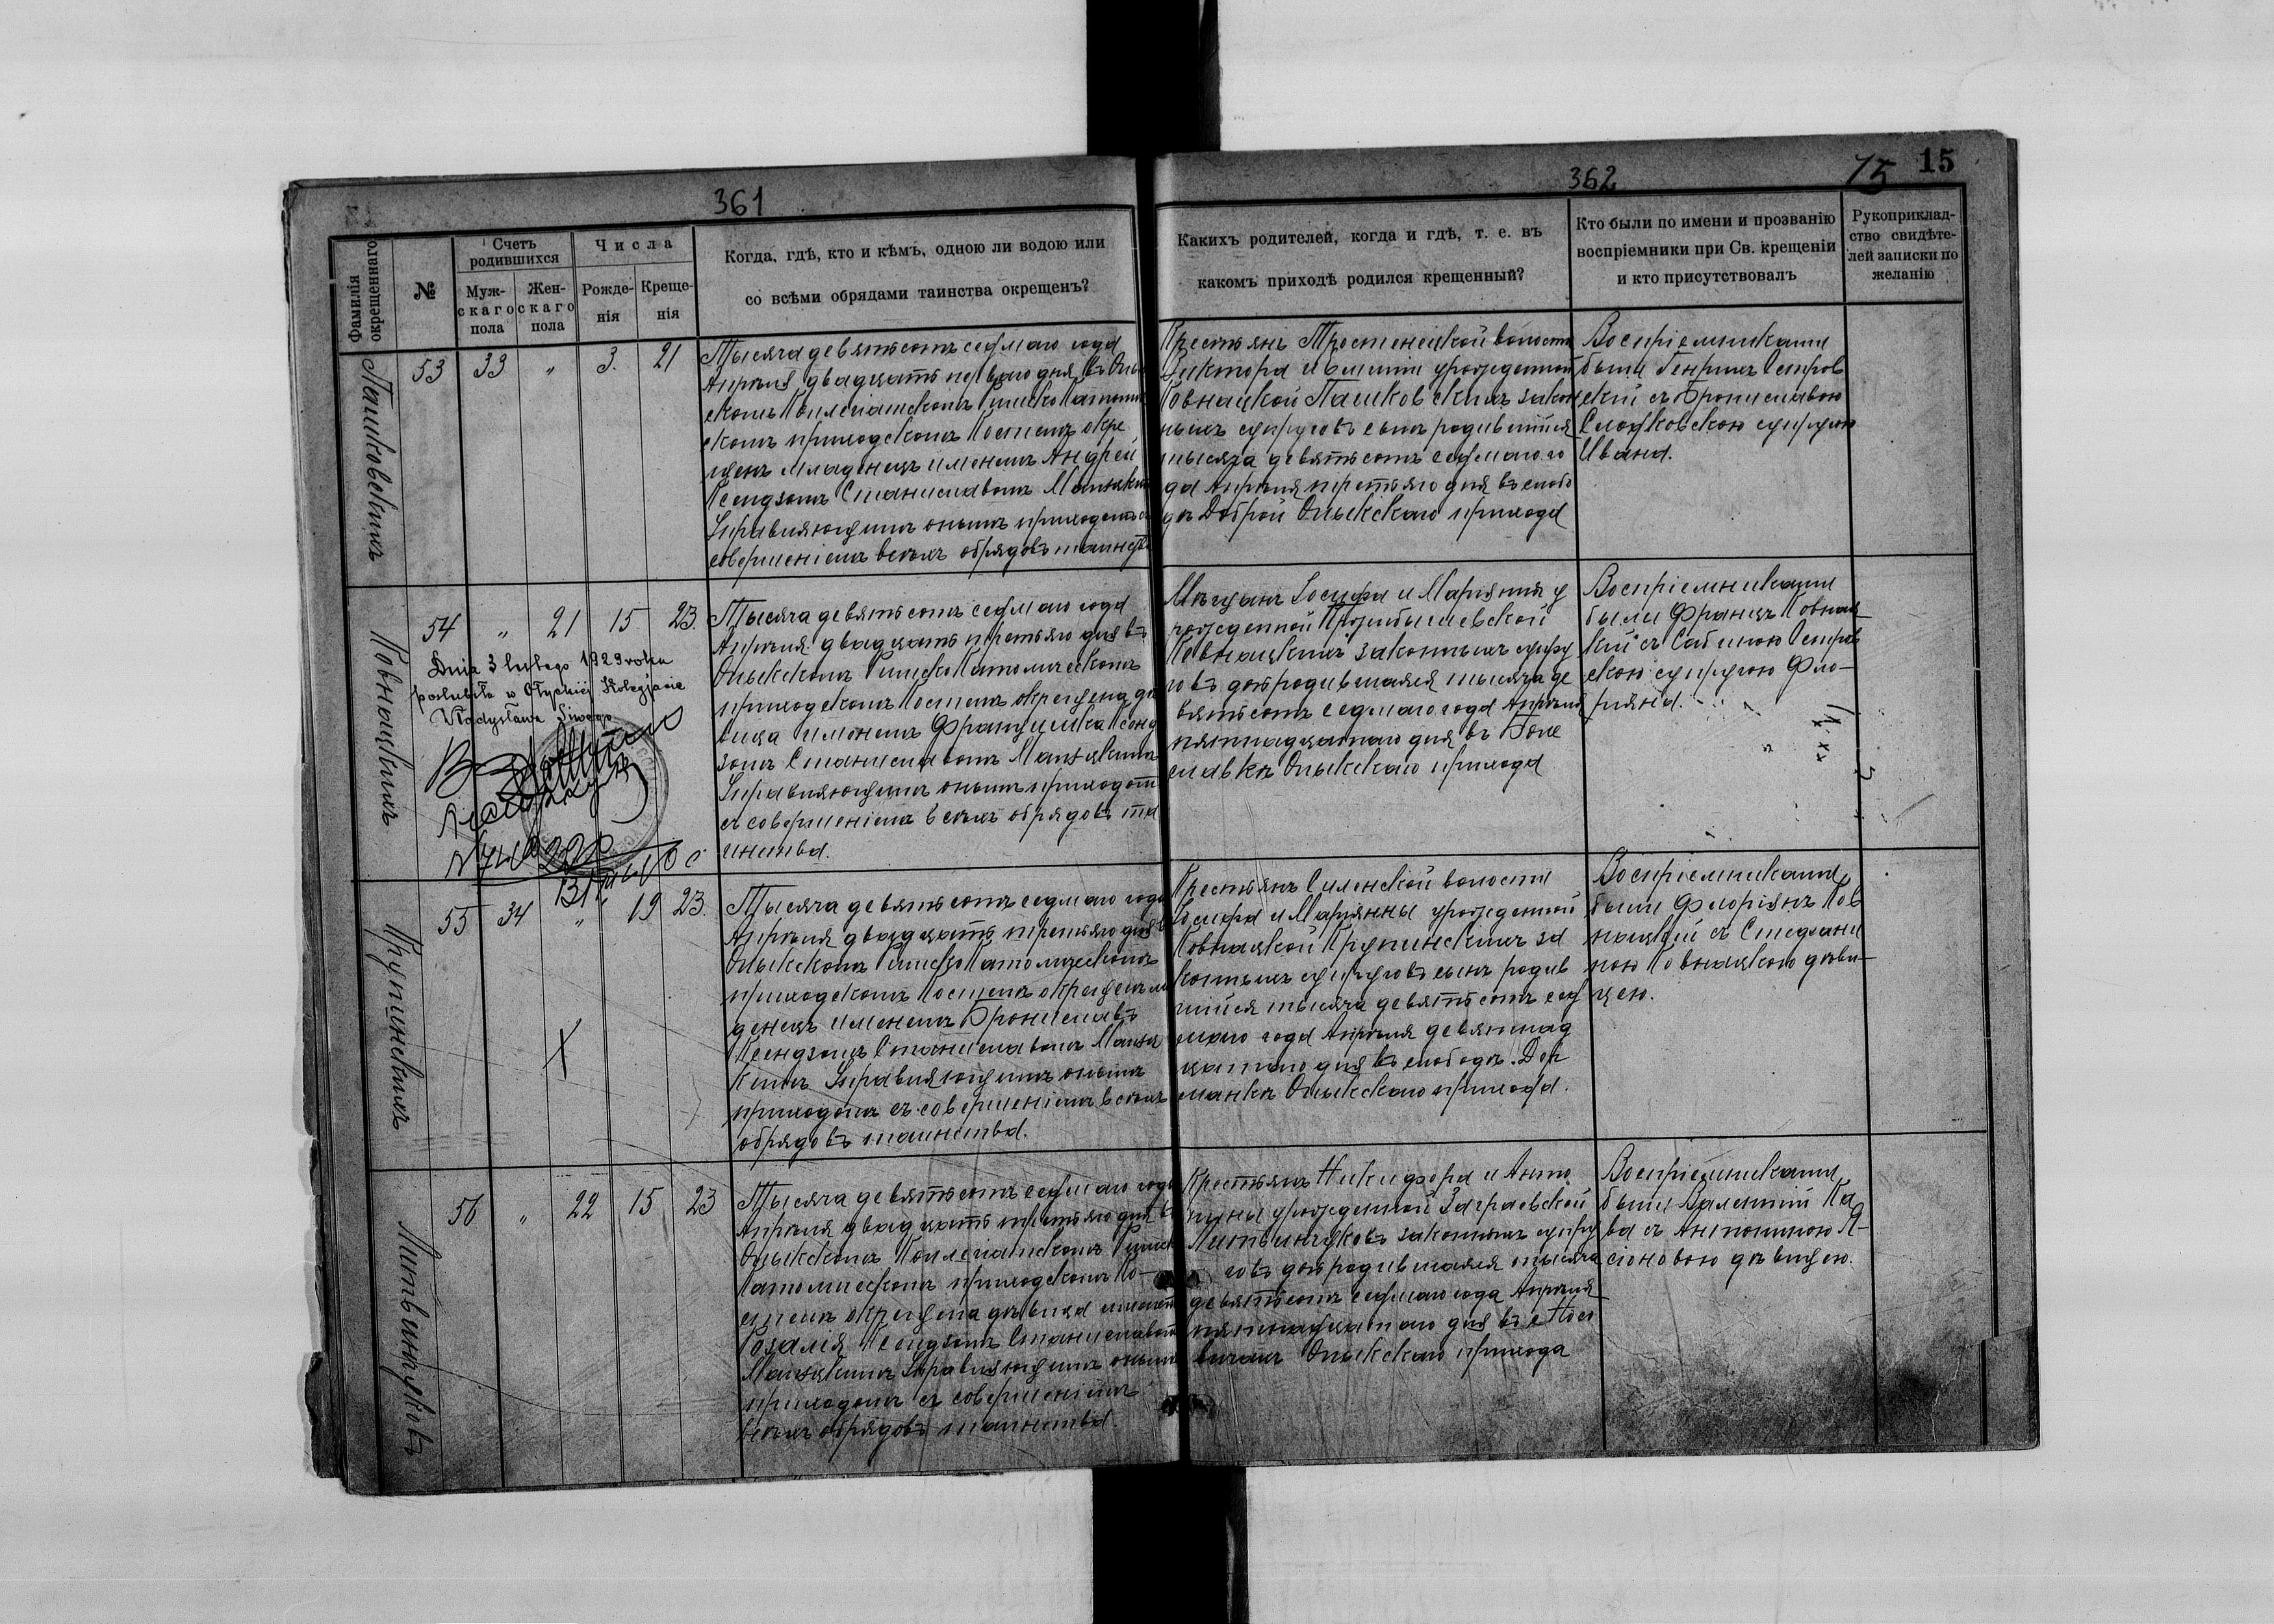 361
362
15
15
Фамилія окрещеннаго
№
Счетъ родившихся
Муж-
скаго
пола
Жен-
скаго
пола
Числа
Рожде-
нія
Креще-
нія
Когда, гдѣ, кто и кѣмъ, одною ли водою или
со всѣми обрядами таинства окрещенъ?
Какихъ родителей, когда и гдѣ, т. е. въ
какомъ приходѣ родился крещенный?
Кто были по имени и прозванію
воспріемники при Св. крещеніи
и кто присутствовалъ
Рукоприклад-
ство свидѣте-
лей записки по
желанію
Пашковскихъ
53 33 " 3. 21
Тысяча девятьсотъ седьмаго года
Апрѣля двадцать перваго дня въ Олы
скомъ Коллегіатскомъ Римско Католич
скомъ приходскомъ Костелѣ окре
щенъ младенецъ именемъ Андрей
Ксендзомъ Станиславомъ
Управляющимъ онымъ приходомъ съ
совершеніемъ всѣхъ обрядовъ таинства
Крестьянъ Тростенецкой волости
Виктора и урожденной
Ковнацкой Пашковскихъ закон
ныхъ супруговъ сынъ родившійся
тысяча девятьсотъ седьмаго го
да Апрѣля третьяго дня въ слобо
дѣ Доброй Олыкскаго прихода
Воспріемниками
были Генрихъ Остров
скій съ Брониславою
супругою
Ивана.
Ковнацкихъ
54 " 21 15 23.
Dnia 3 lutego 1929 roku
poślubiła w Ołyckiej Kolegjacie
Władysława Siwego
Тысяча девятьсотъ седьмаго года
Апрѣля двадцать третьяго дня въ
Олыкскомъ Римско Католическомъ
приходскомъ Костелѣ окрещена дѣ
вица именемъ Францишка Ксенд
зомъ Станиславомъ
Управляющимъ онымъ приходомъ
съ совершеніемъ всѣхъ обрядовъ та
инства.
Мѣщанъ Іосифа и Маріянны у
рожденной
Ковнацкихъ законныхъ супру
говъ дочь родившаяся тысяча де
вятьсотъ седьмаго года Апрѣля
пятнадцатаго дня въ Боле
славкѣ Олыкскаго прихода
Воспріемниками
были Францъ Ковнац
кій съ Сабиною Остров
скою супругою Фло-
ріяна.
Крупинскихъ
55 34 " 19 23.
Тысяча девятьсотъ седьмаго года
Апрѣля двадцать третьяго дня въ
Олыкскомъ Римско Католическомъ
приходскомъ Костелѣ окрещенъ мла
денецъ именемъ Брониславъ
Ксендзомъ Станиславомъ
Управляющимъ онымъ
приходомъ съ совершеніемъ всѣхъ
обрядовъ таинства.
Крестьянъ Силенской волости
Іосифа и Маріянны урожденной
Ковнацкой Крупинскихъ за
конныхъ супруговъ сынъ родив
шійся тысяча девятьсотъ сед
маго года Апрѣля девятнад
цатаго дня въ слободѣ Дер
манкѣ Олыкскаго прихода.
Воспріемниками
были Флоріянъ Ков
нацкій съ Стефани
ною Ковнацкою дѣви-
цею.
Литвинчуковъ
56 " 22 15 23
Тысяча девятьсотъ седьмаго года
Апрѣля двадцать третьяго дня въ
Олыкскомъ Коллегіатскомъ Римск
Католическомъ приходскомъ Ко-
стелѣ окрещена дѣвица именемъ
Розалія Ксендзомъ Станиславомъ
Управляющимъ онымъ
приходомъ съ совершеніемъ
всѣхъ обрядовъ таинства.
Крестьянъ Никифора и Анто
нины урожденной Заграевской
Литвинчуковъ законныхъ супру
говъ дочь родившаяся тысяча
девятьсотъ седьмаго года Апрѣля
пятнадцатаго дня въ с Носо
вичахъ Олыкскаго прихода
Воспріемниками
были Валентій Ка
ва съ Антониною Я-
сіоновою дѣвицею.